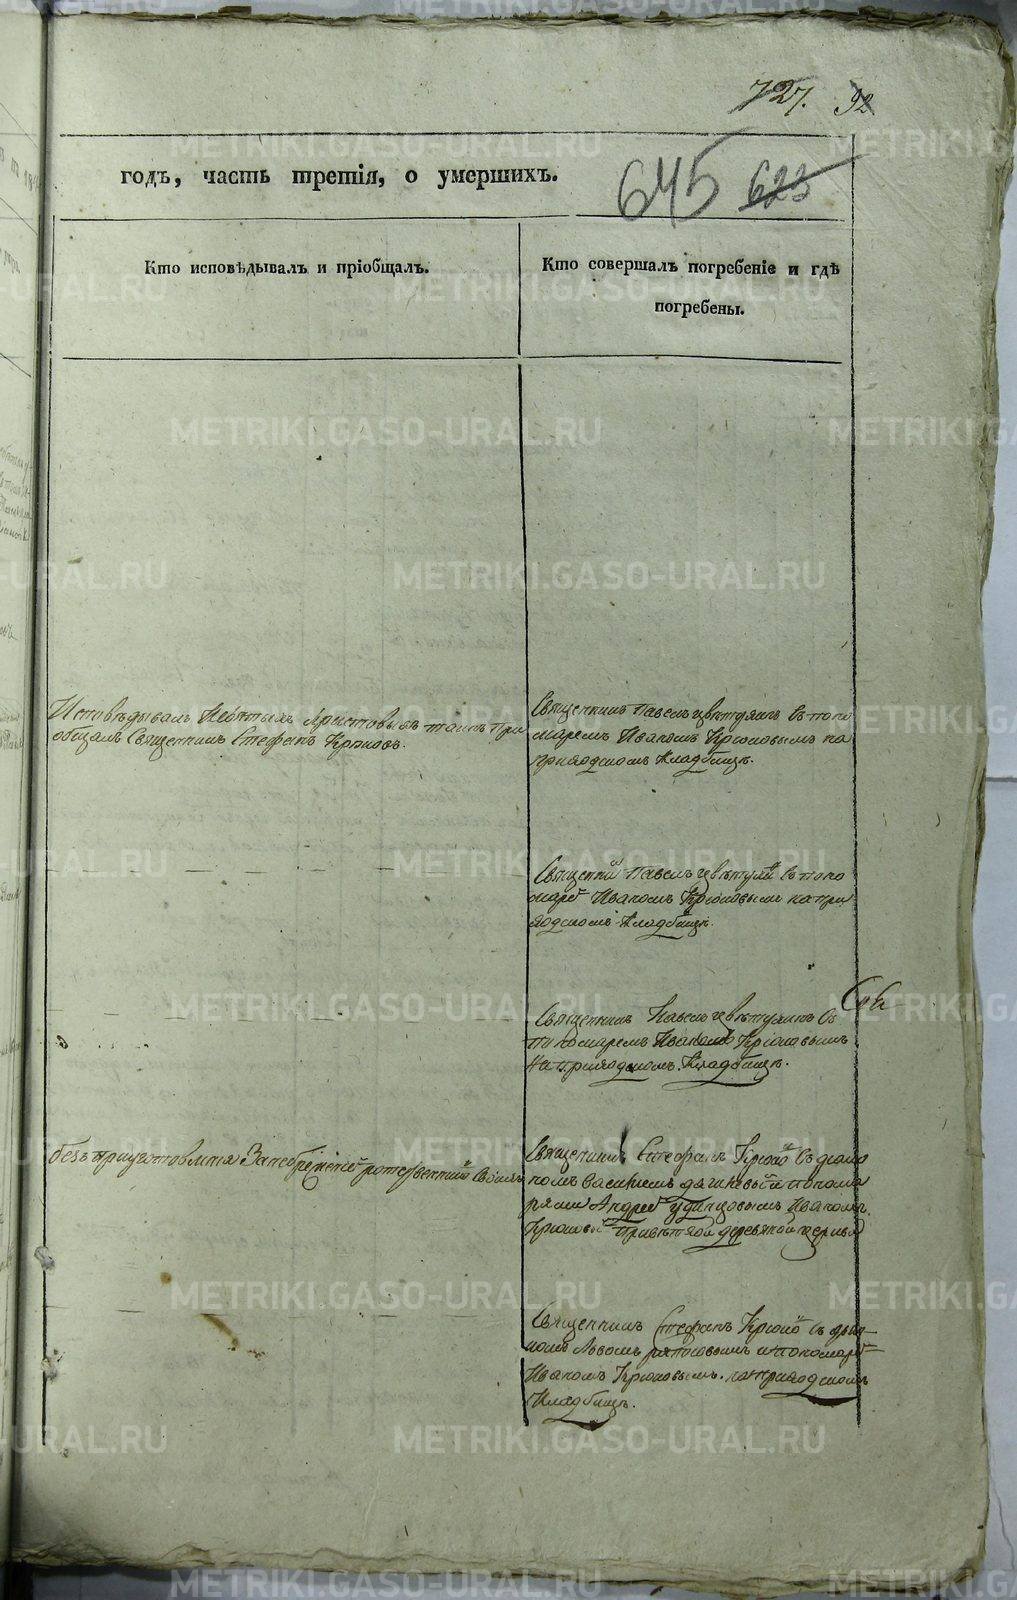 727. 92
годъ, часть третія, о умершихъ.
645 623
Кто исповѣдывалъ и пріобщалъ.
Кто совершалъ погребеніе и гдѣ
погребены.
Исповѣдывалъ Христовыхъ таинъ при
общалъ Священникъ Стефанъ Крюковъ.
Священникъ Павелъ съ поно
маремъ Иваномъ Крюковымъ на
приходскомъ Кладбищѣ.
Священникъ Павелъ съ поно
маремъ Иваномъ Крюковымъ на при
ходскомъ Кладбищѣ.
Священникъ Павелъ съ
пономаремъ Иваномъ Крюковымъ
на приходскомъ Кладбищѣ.
безъ приуготовленія
Священникъ Стефанъ Крюко съ діако
номъ Василіемъ и понома
рями Андре Удинцовымъ Иваномъ
Крюковы деревяной церкви
Священникъ Стефанъ Крюко съ діако
номъ Львомъ и пономаре
Иваномъ Крюковымъ. на приходскомъ
Кладбищѣ.
METRIKI.GASO-URAL.RU